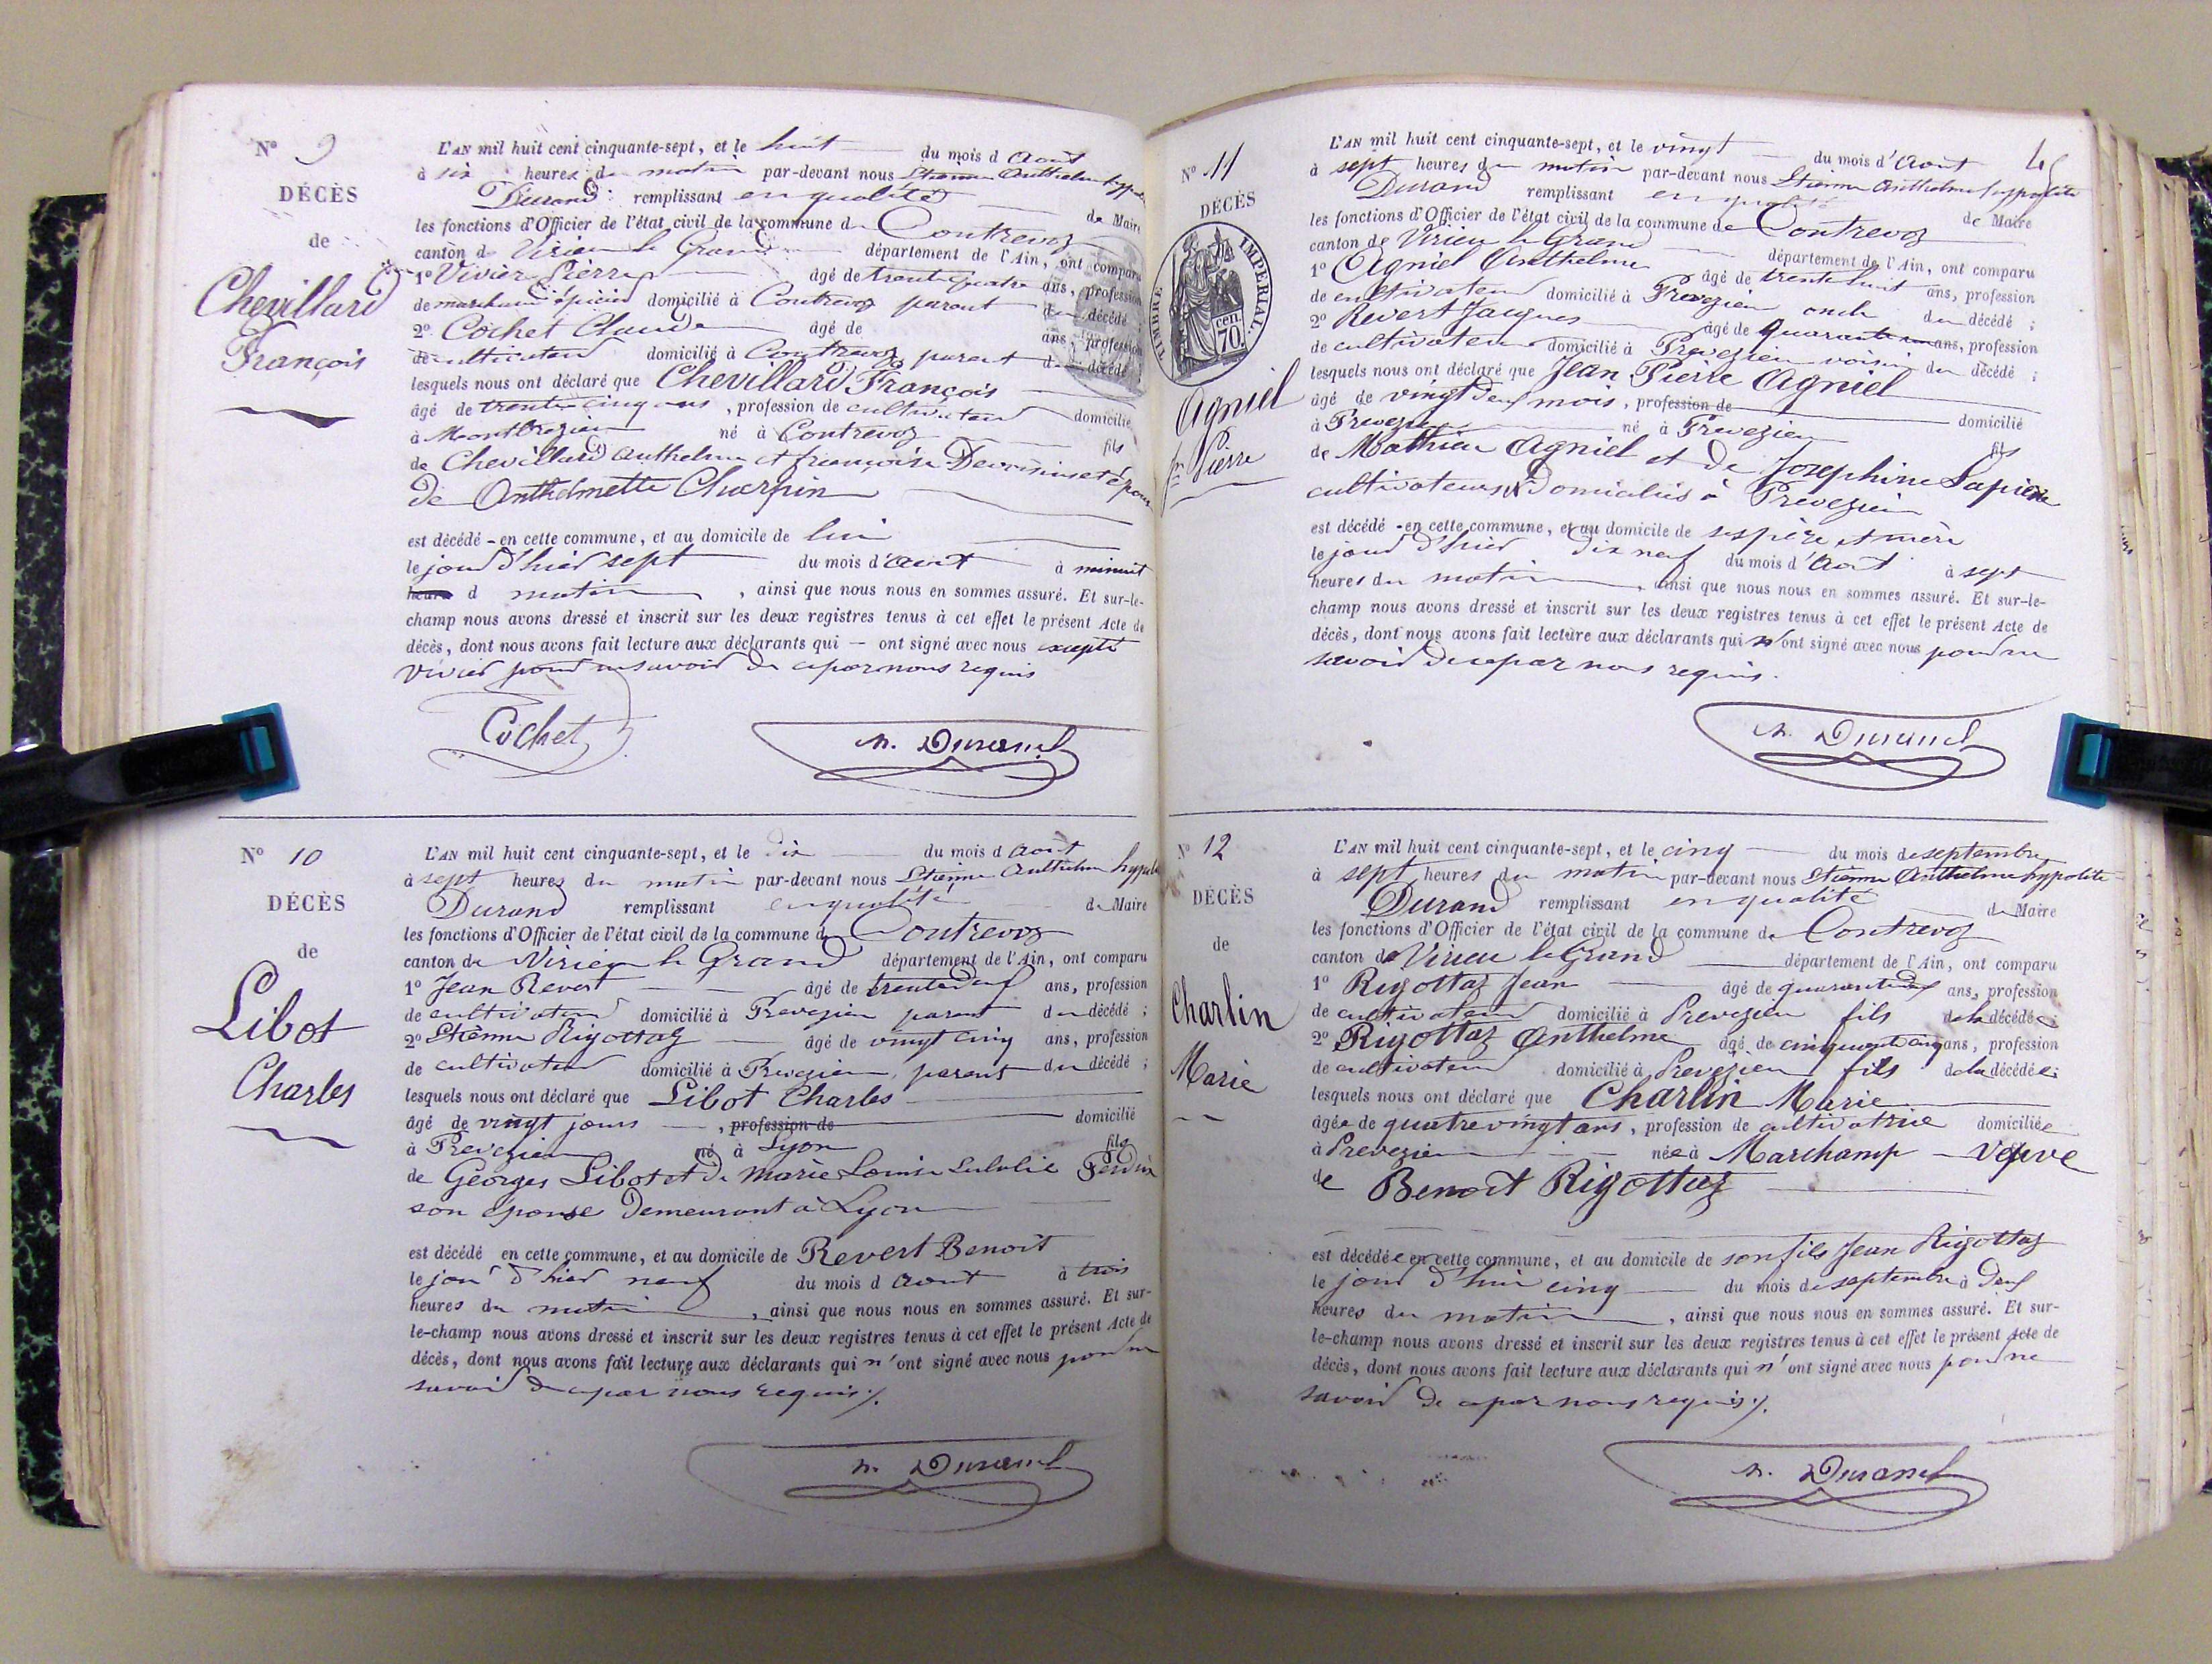 N° 9
DÉCÈS
de
Chevillard
François
L'AN mil huit cent cinquante-sept, et le huit du mois d Août
à six heures du matin par-devant nous Etienne Anthelme hyppo
Durand remplissant en qualité de Maire
les fonctions d'Officier de l'état civil de la commune de Contrevoz
canton de Virieu le Grand département de l'Ain, ont comparu
1° Vivier Pierre âgé de trente quatre ans, profession
de marchand épicier domicilié à Contrevoz parent du décédé ;
2° Cochet Claude âgé de ans, profession
de cultivateur domicilié à Contrevoz parent du décédé ;
lesquels nous ont déclaré que Chevillard François
âgé de trente cinq ans, profession de cultivateur domicilié
à né à Contrevoz fils
de Chevillard Anthelme et françoise et époux
de Anthelmette Charpin
est décédé - en cette commune, et au domicile de lui
le jour d'hier sept du mois d'Août à minuit
heures d matin, ainsi que nous nous en sommes assuré. Et sur-le-
champ nous avons dressé et inscrit sur les deux registres tenus à cet effet le présent Acte de
décès, dont nous avons fait lecture aux déclarants qui — ont signé avec nous excepté
Vivier pour ne savoir de ce par nous requis
Cochet
h. Durand
N° 10
DÉCÈS
de
Libot
Charles
L'AN mil huit cent cinquante-sept, et le dix du mois d Août
à sept heures du matin par-devant nous Etienne Anthelme hyppolite
Durand remplissant en qualité de Maire
les fonctions d'Officier de l'état civil de la commune de Contrevoz
canton de Virieu le Grand département de l'Ain, ont comparu
1° Jean Revert âgé de trente deux ans, profession
de cultivateur domicilié à Prevezieu parent du décédé ;
2° Etienne Rigottaz âgé de vingt cinq ans, profession
de cultivateur domicilié à Prevezieu, parent du décédé ;
lesquels nous ont déclaré que Libot Charles
âgé de vingt jours, profession de domicilié
à Prevezieu né à Lyon fils
de Georges Libot et de Marie Louise
son épouse demeurant à Lyon
est décédé en cette commune, et au domicile de Revert Benoit
le jour d'hier neuf du mois d Août à trois
heures du matin, ainsi que nous nous en sommes assuré. Et sur-
le-champ nous avons dressé et inscrit sur les deux registres tenus à cet effet le présent Acte de
décès, dont nous avons fait lecture aux déclarants qui n'ont signé avec nous pour ne
savoir de ce par nous requis ./.
h. Durand
45
N° 11
DÉCÈS
TIMBRE IMPERIAL
70 cen.
Agniel
Pierre
L'AN mil huit cent cinquante-sept, et le vingt du mois d'Août
à sept heures du matin par-devant nous Etienne Anthelme hyppolite
Durand remplissant en qualité de Maire
les fonctions d'Officier de l'état civil de la commune de Contrevoz
canton de Virieu le Grand département de l'Ain, ont comparu
1° Agniel Anthelme âgé de trente huit ans, profession
de cultivateur domicilié à Prevezieu oncle du décédé ;
2° Revert Jacques âgé de quarante un ans, profession
de cultivateur domicilié à Prevezieu voisin du décédé ;
lesquels nous ont déclaré que Jean Pierre Agniel
âgé de vingt deux mois, profession de domicilié
à Prevezieu né à Prevezieu fils
de Mathieu Agniel et de Josephine Sapin
cultivateurs domiciliés à Prevezieu
est décédé - en cette commune, et au domicile de ses père et mère
le jour d'hier dix neuf du mois d'Août à sept
heures du matin, ainsi que nous nous en sommes assuré. Et sur-le-
champ nous avons dressé et inscrit sur les deux registres tenus à cet effet le présent Acte de
décès, dont nous avons fait lecture aux déclarants qui n'ont signé avec nous pour ne
savoir de ce par nous requis.
h. Durand
N° 12
DÉCÈS
de
Charlin
Marie
L'AN mil huit cent cinquante-sept, et le cinq du mois de septembre
à sept heures du matin par-devant nous Etienne Anthelme hyppolite
Durand remplissant en qualité de Maire
les fonctions d'Officier de l'état civil de la commune de Contrevoz
canton de Virieu le Grand département de l'Ain, ont comparu
1° Rigottaz Jean âgé de quarante deux ans, profession
de cultivateur domicilié à Prevezieu fils de la décédée ;
2° Rigottaz Anthelme âgé de cinquante cinq ans, profession
de cultivateur domicilié à Prevezieu fils de la décédée ;
lesquels nous ont déclaré que Charlin Marie
âgée de quatre vingt ans, profession de cultivatrice domiciliée
à Prevezieu née à Marchamp - Veuve
de Benoit Rigottaz
est décédée en cette commune, et au domicile de son fils Jean Rigottaz
le jour d'hui cinq du mois de septembre à deux
heures du matin, ainsi que nous nous en sommes assuré. Et sur-
le-champ nous avons dressé et inscrit sur les deux registres tenus à cet effet le présent Acte de
décès, dont nous avons fait lecture aux déclarants qui n'ont signé avec nous pour ne
savoir de ce par nous requis ./.
h. Durand